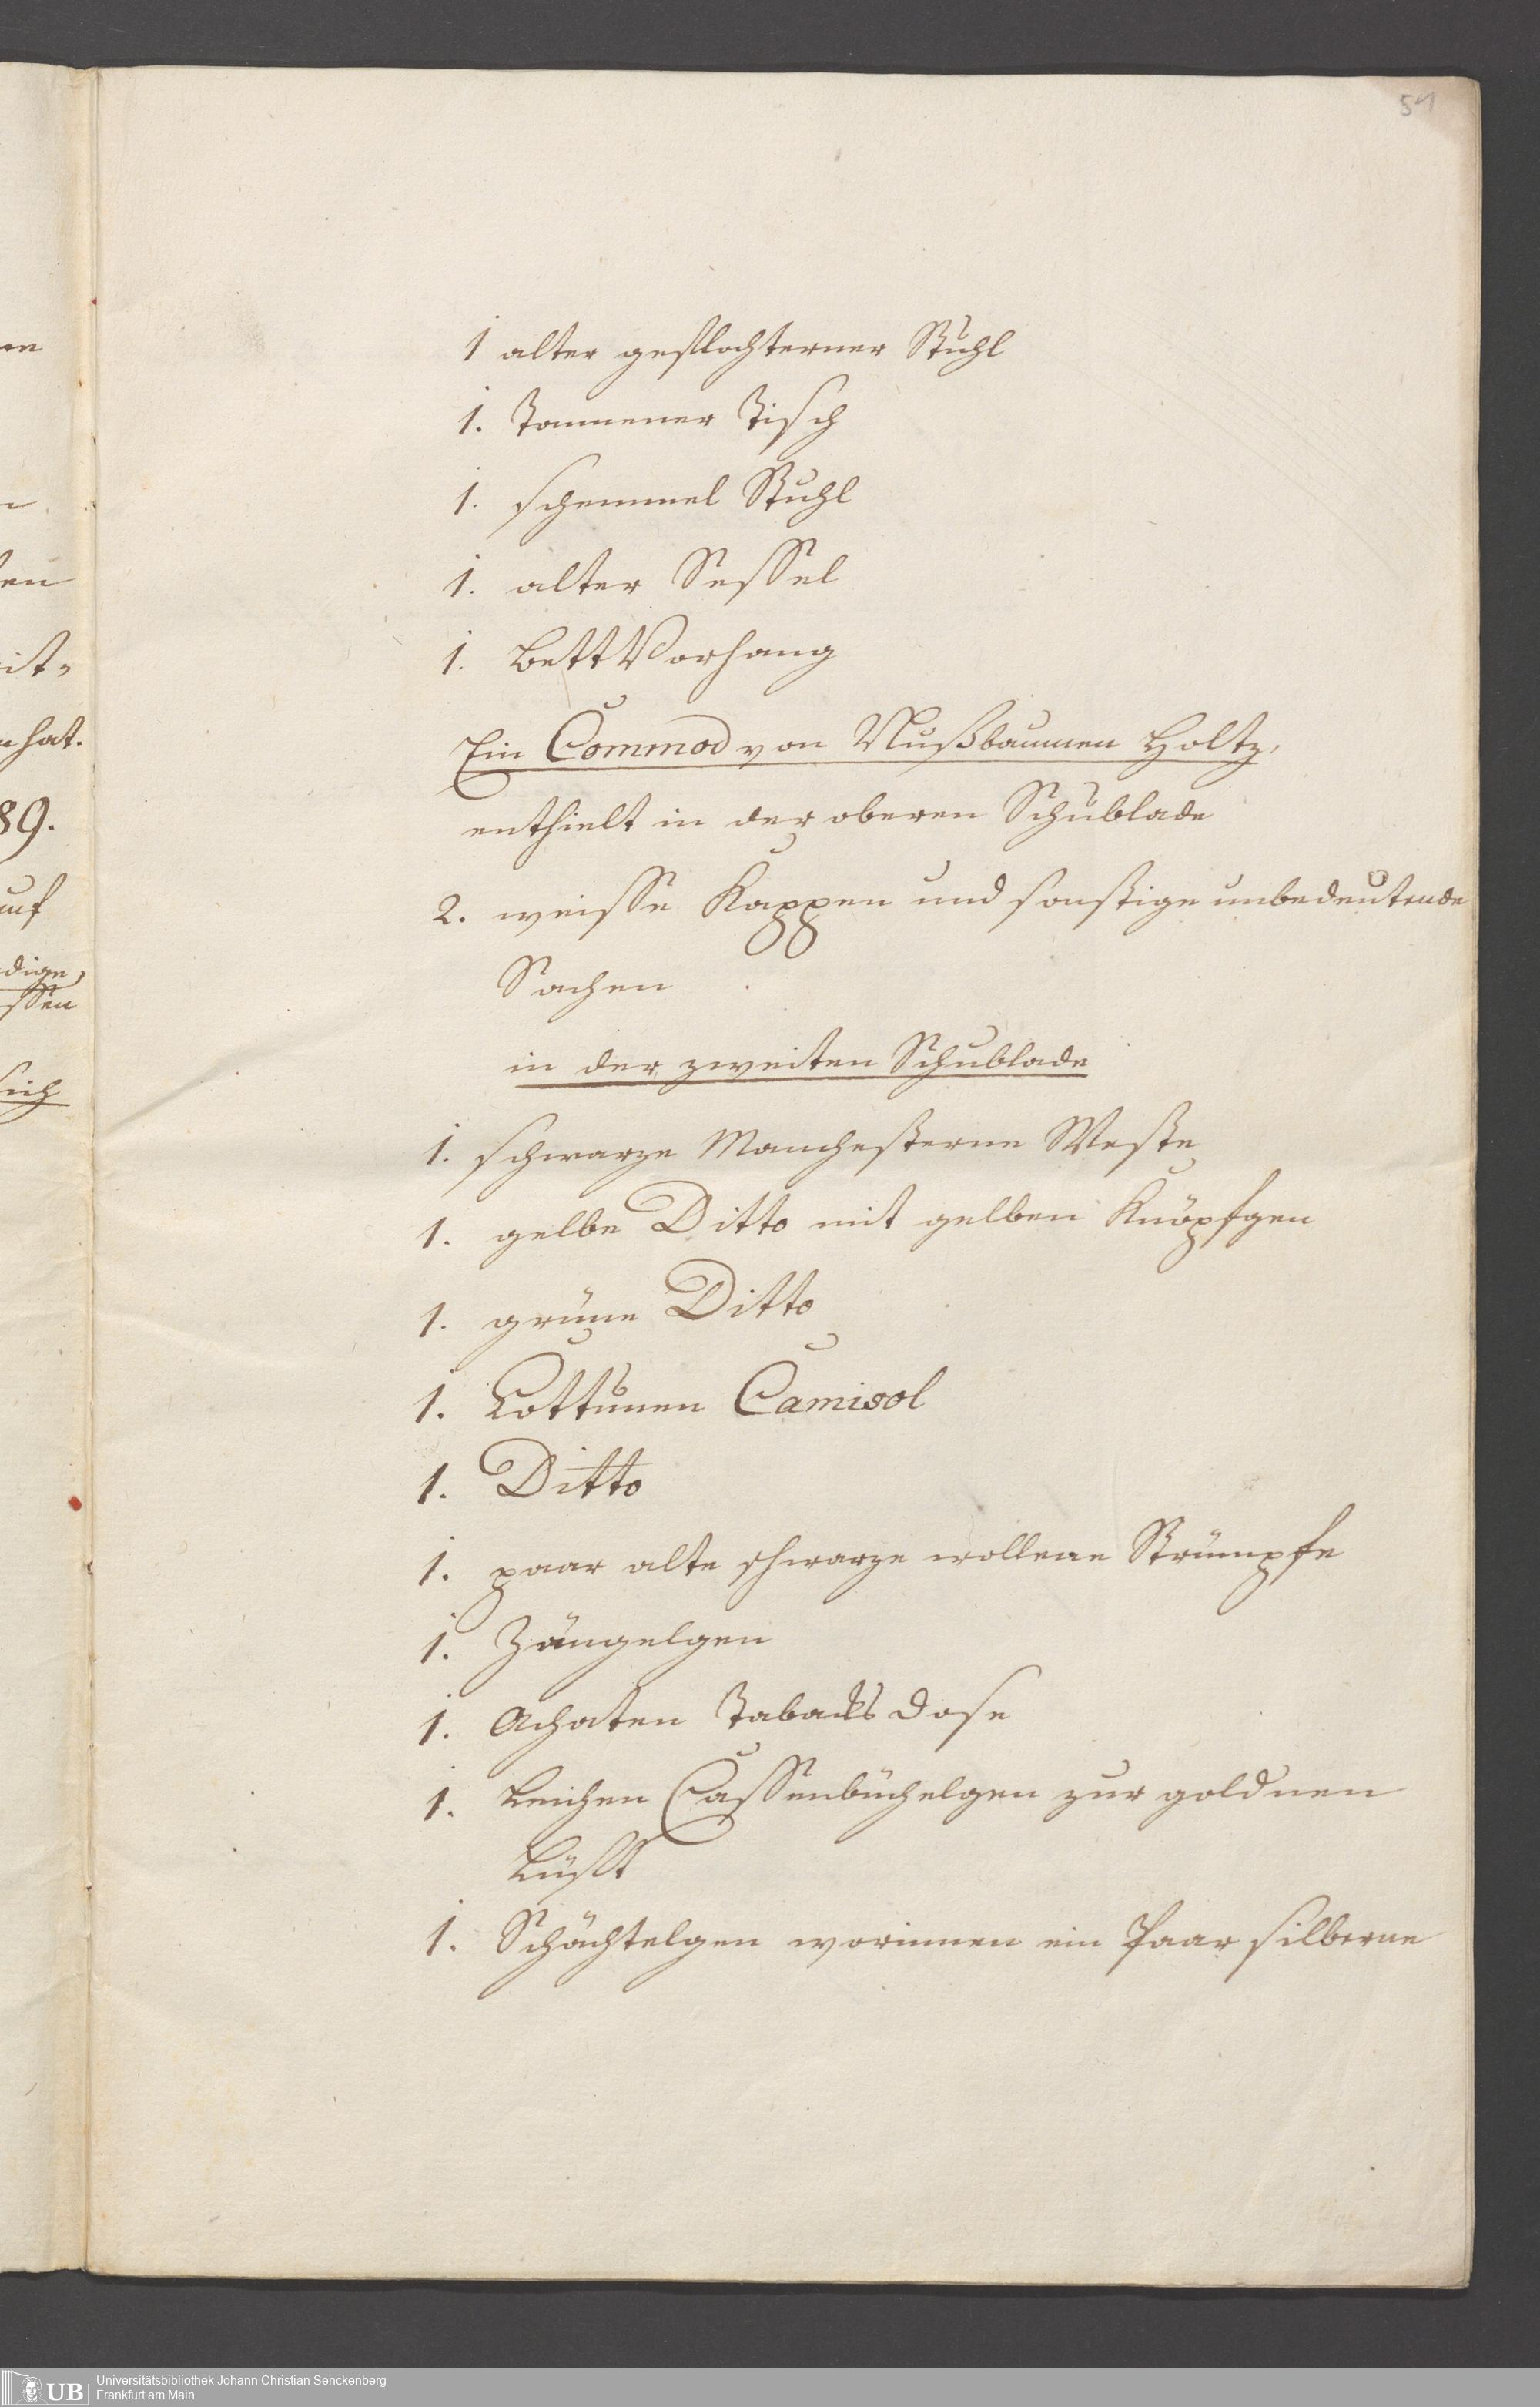 54
1 alter geflochterner Stuhl
1. Tannener Tisch
1. schemmel Stuhl
1. alter Sessel
1. Bett Vorhang
Ein Commod von Nußbaumen Holtz,
enthielt in der oberen Schublade
2. weisse Kappen und sonstige unbedeutende
Sachen
in der zweiten Schublade
1. schwarze Manchesterne Weste
1. gelbe Ditto mit gelben Knöpfgen
1. grüne Ditto
1. Cottunen Camisol
1. Ditto
1. paar alte schwarze wollene Strümpfe
1. Zängelgen
1. Achaten Tabacks dose
1. Leichen Cassenbüchelgen zur goldnen
Lufft
1. Schächtelgen worinnen ein Paar silberne
hat.
89.
auf
dige,
ssen
sich
UB Universitätsbibliothek Johann Christian Senckenberg
Frankfurt am Main